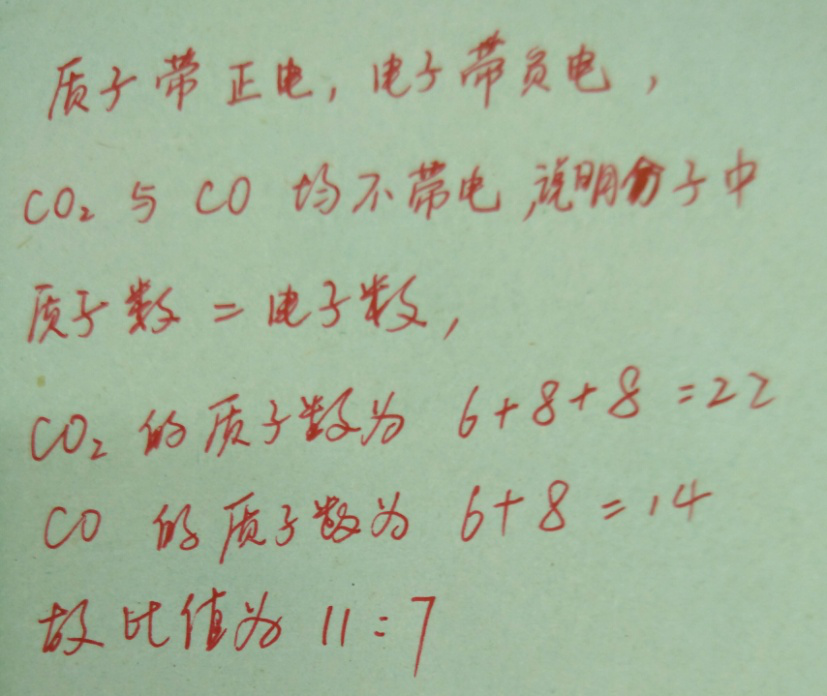 质子带正电，电子带负电，
CO₂与CO均不带电，说明分子中
质子数=电子数，
CO₂的质子数为 6+8+8=22
CO 的质子数为 6+8=14
故比值为 11:7